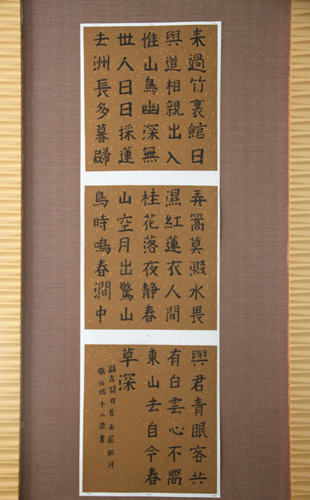 来過竹裏館日
與道相親出入
惟山鳥幽深無
世人日日採蓮
去洲長多暮歸
弄篙莫濺水畏
濕紅蓮衣人間
桂花落夜静春
山空月出驚山
鳥時鳴春澗中
與君青眼客共
有白雲心不嚮
東山去自今春
草深
古詩四首
十二歲書